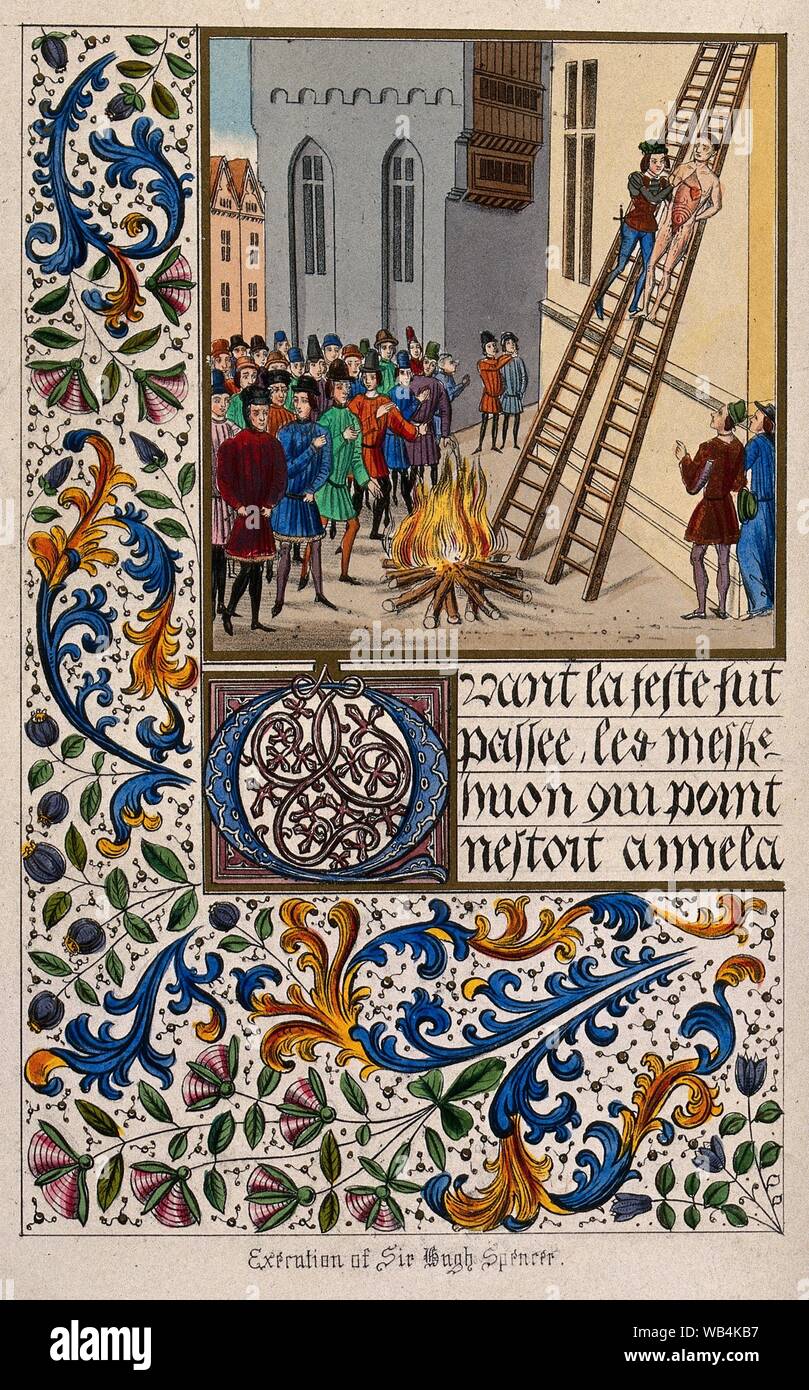 Quant la feste fut
passee, les messire
huon qui point
nestoit anmela
Execution of Sir Hugh Spencer.
alamy
Image ID: WB4KB7
www.alamy.com